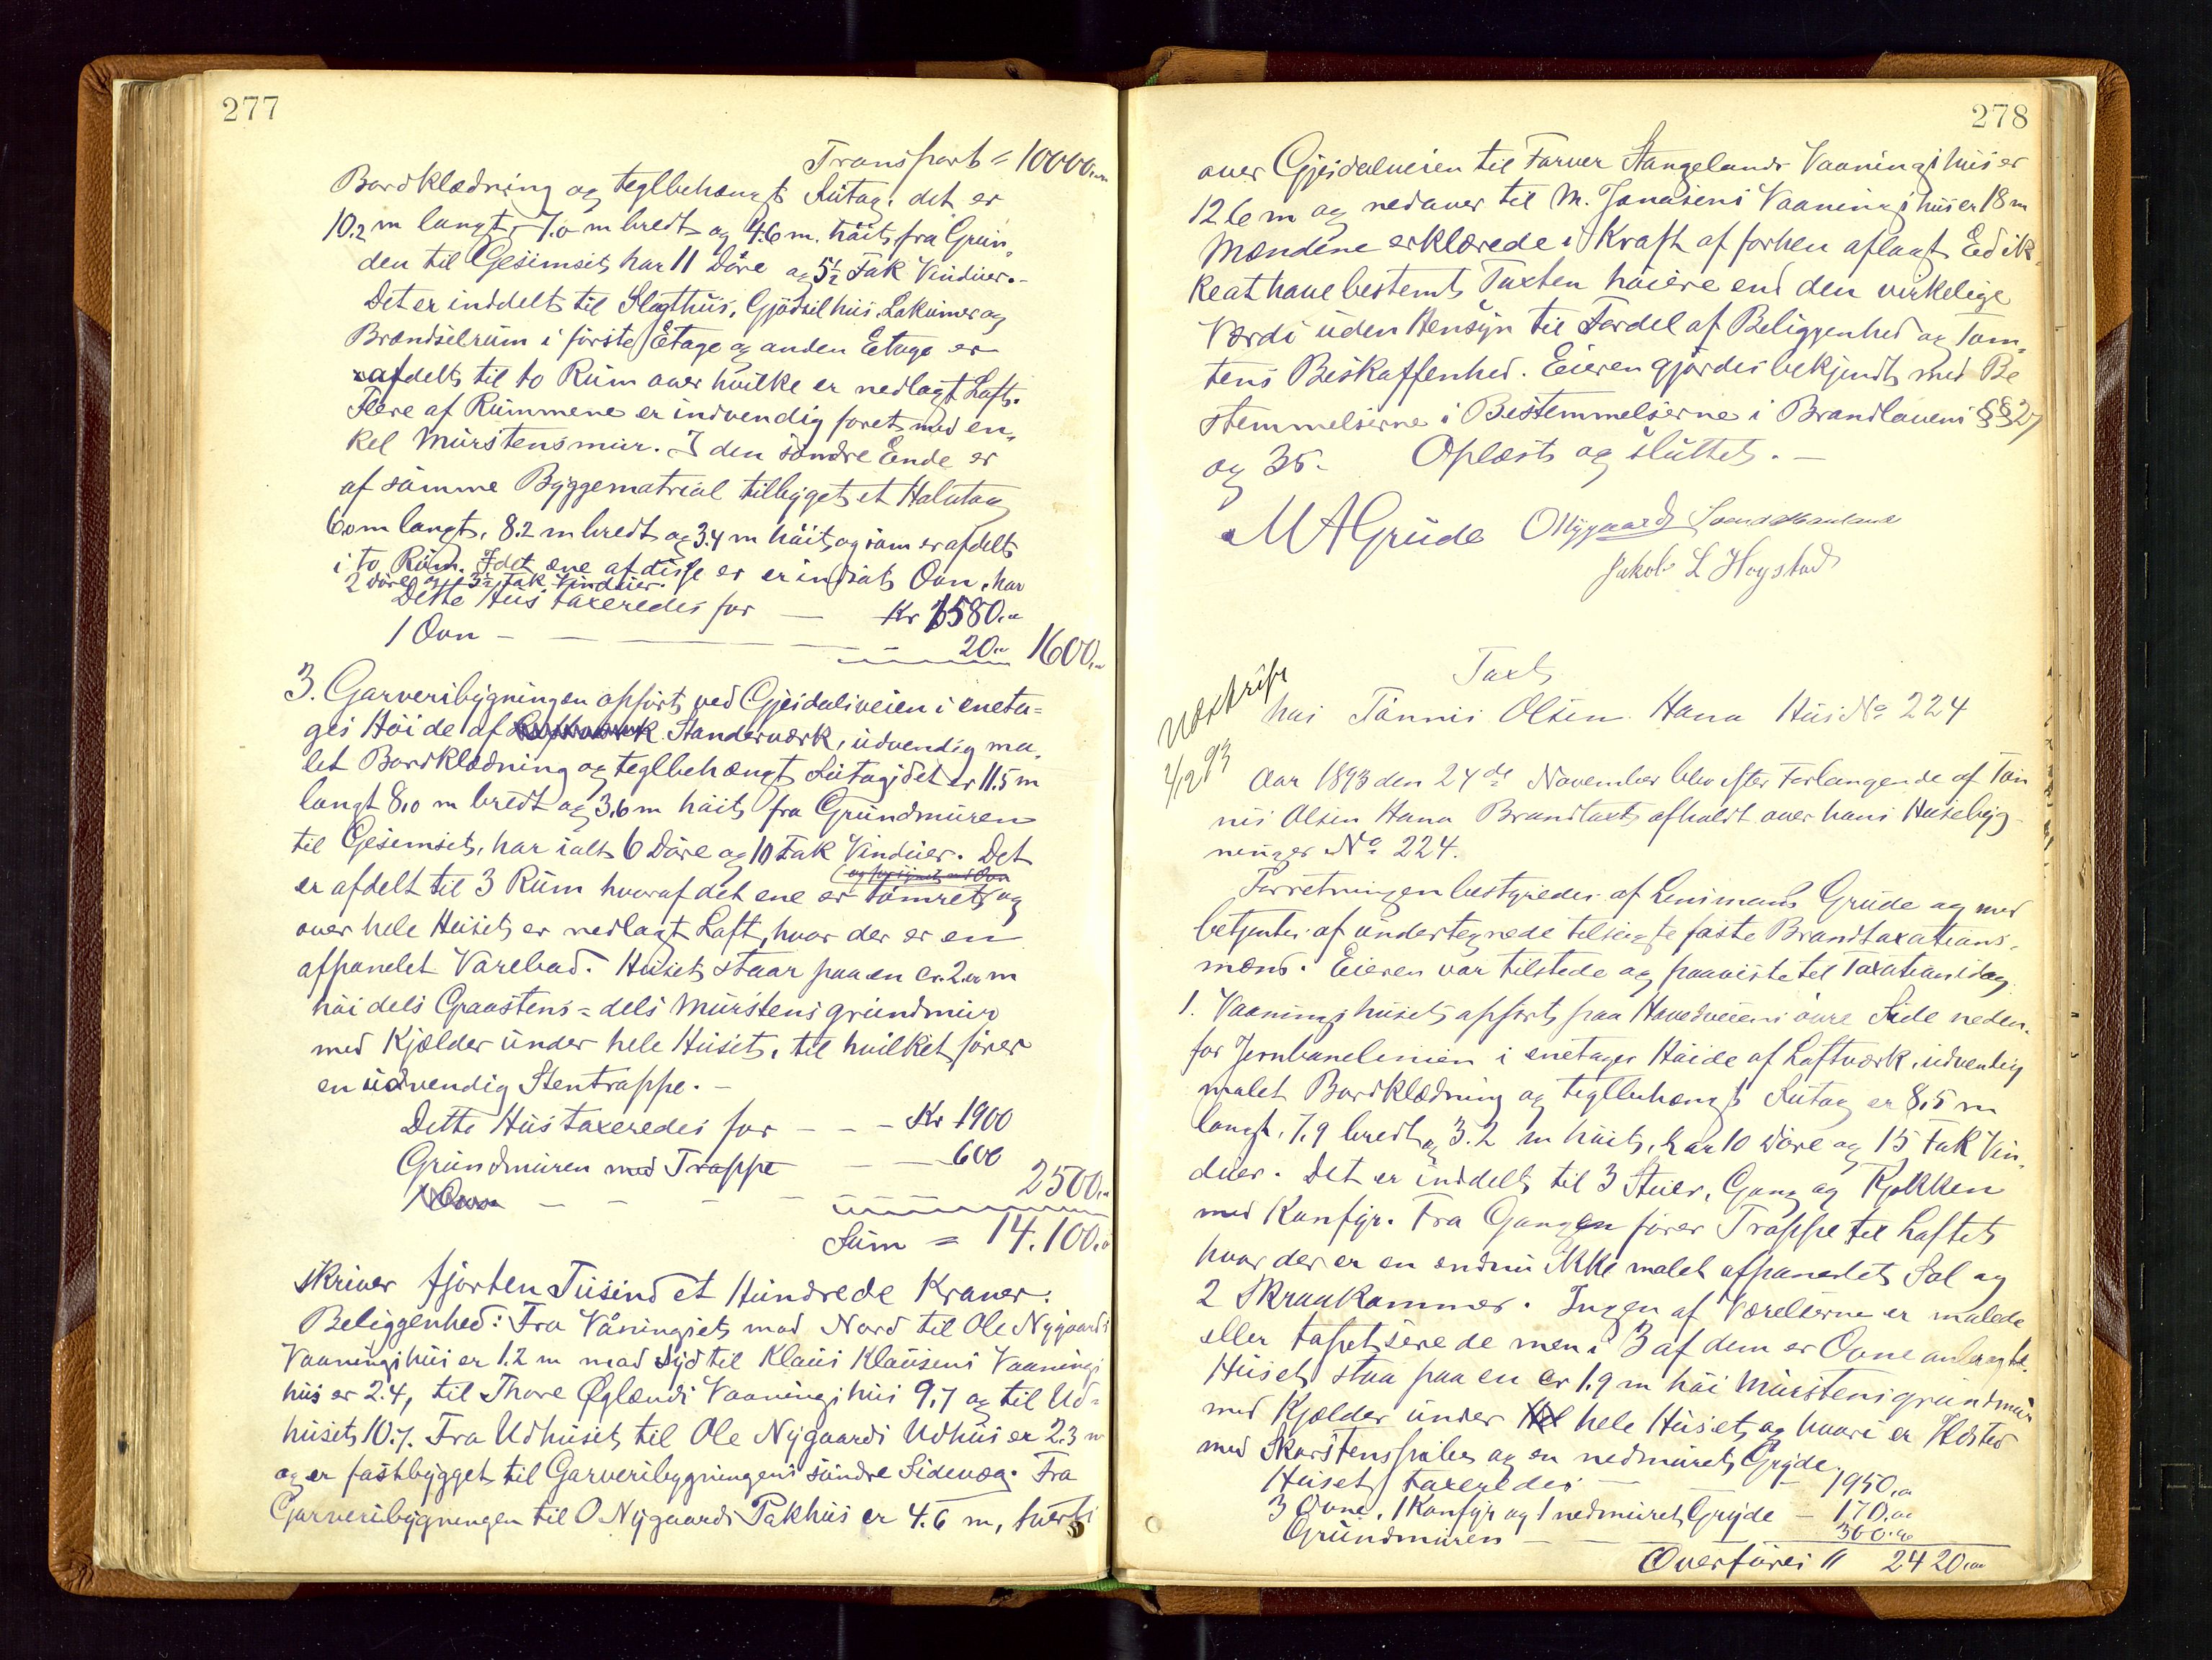 277
Transport = 10000,00
Bordklædning og teglbehængt Sutag. det er
10.2 m langt, 7.0 m bredt og 4.6 m. høit fra Grun-
den til Gesimset, har 11 Døre og 5½ Fak Vinduer.-
Det er inddelt til Slagthus, Gjødselhus, Lokumer og
Brændselrum i første Etage og anden Etage er
afdelt til to Rum over hvilke er nedlagt Loft.
Flere af Rummene er indvendig foret med en-
kel Murstensmur. I den søndre Ende er
af samme Byggematrial tilbyget et Halvtag
6.0 m langt, 8.2 m bredt og 3.4 m høit og som er afdelt
i to Rum. I det ene af disse er er indsat Ovn, har
2 Døre og 3½ Fak Vinduer.
Dette Hus taxeredes for — Kr 1580.00
1 Ovn — — — 20.00 1600,00
3. Garveribygningen opført ved Gjesdalsveien i eneta-
ges Høide af Standerværk, udvendig ma-
let Bordklædning og teglbehængt Sutag; det er 11.5 m
langt 8,0 m bredt og 3,6 m høit fra Grundmuren
til Gesimset, har ialt 6 Døre og 10 Fak Vinduer. Det
(og forsynet med Ovn
er afdelt til 3 Rum hvoraf det ene er tømret og
over hele Huset er nedlagt Loft, hvor der er en
afpanelet Varebod. Huset staar paa en cr. 2.0 m
høi dels Graastens= dels Murstens grundmur
med Kjælder under hele Huset, til hvilket fører
en udvendig Stentrappe. -
Dette Hus taxeredes for - - - Kr 1900
Grundmuren med Trappe — — 600
1 Ovn - - - - 2500,00
Sum = 14.100,00
skriver fjorten Tusind et Hundrede Kroner.
Beliggenhed: Fra Våningset mod Nord til Ole Nygaards
Vaaningshus er 1.2 m mod Syd til Klaus Klausens Vaanings
hus er 2.4, til Thore Øglænds Vaaningshus 9.7 og til Ud-
huset 10.7. Fra Udhuset til Ole Nygaards Udhus er 2.3 m
og er fastbygget til Garveribygningens søndre Sidevæg. Fra
Garveribygningen til O Nygaards Pakhus er 4.6 m, tvert
278
over Gjesdalveien til Farver Stangelands Vaaningshus er
12.6 m og nedover til M. Jonasens Vaaningshus er 18 m
Mændene erklærede i Kraft af forhen aflagt Ed ik-
ke at have bestemt Taxten høiere end den virkelige
Værdi uden Hensyn til Fordel af Beliggenhed og Tom-
tens Beskaffenhed. Eieren gjordes bekjendt med Be
stemmelserne i Bestemmelserne i Brandlovens §§ 27
og 35. Oplæst og sluttet. —
MAGrude ONygaard Svend
Jakob L Hogstad
Taxt
hos Tønnis Olsen Hana Hus No 224
2/12 93
Aar 1893 den 24de November blev efter Forlangende af Tøn
nis Olsen Hana Brandtaxt afholdt over hans Husebyg-
ninger No 224.
Forretningen bestyredes af Lensmand Grude og med
betjentes af undertegnede tilsagte faste Brandtaxations-
mænd. Eieren var tilstede og paaviste til Taxationidag
1. Vaaningshuset opført paa Hovedveiens øvre Side neden-
for Jernbanelinien i enetages Høide af Loftværk, udvendig
malet Bordklædning og teglbehængt Sutag er 8,5 m
langt, 7,9 bredt og 3.2 m høit, har 10 Døre og 15 Fak Vin-
duer. Det er inddelt til 3 Stuer, Gang og Kjøkken
med Komfyr. Fra Gangen fører Trappe til Loftet
hvor der er en endnu ikke malet afpanelet Sal og
2 Skraakammer. Ingen af Værelserne er malede
eller tapetserede men i 3 af dem er Ovne anbragte.
Huset staa paa en cr 1.9 m høi Murstensgrundmur
med Kjælder under hele Huset og hvori er Ildsted
med Skorstenspibe og en nedmuret Gryde.
Huset taxeredes — — 1950,00
3 Ovne, 1 Komfyr og 1 nedmuret Gryde — 170,00
Grundmuren — — 300.00
Overføres " 2420,00